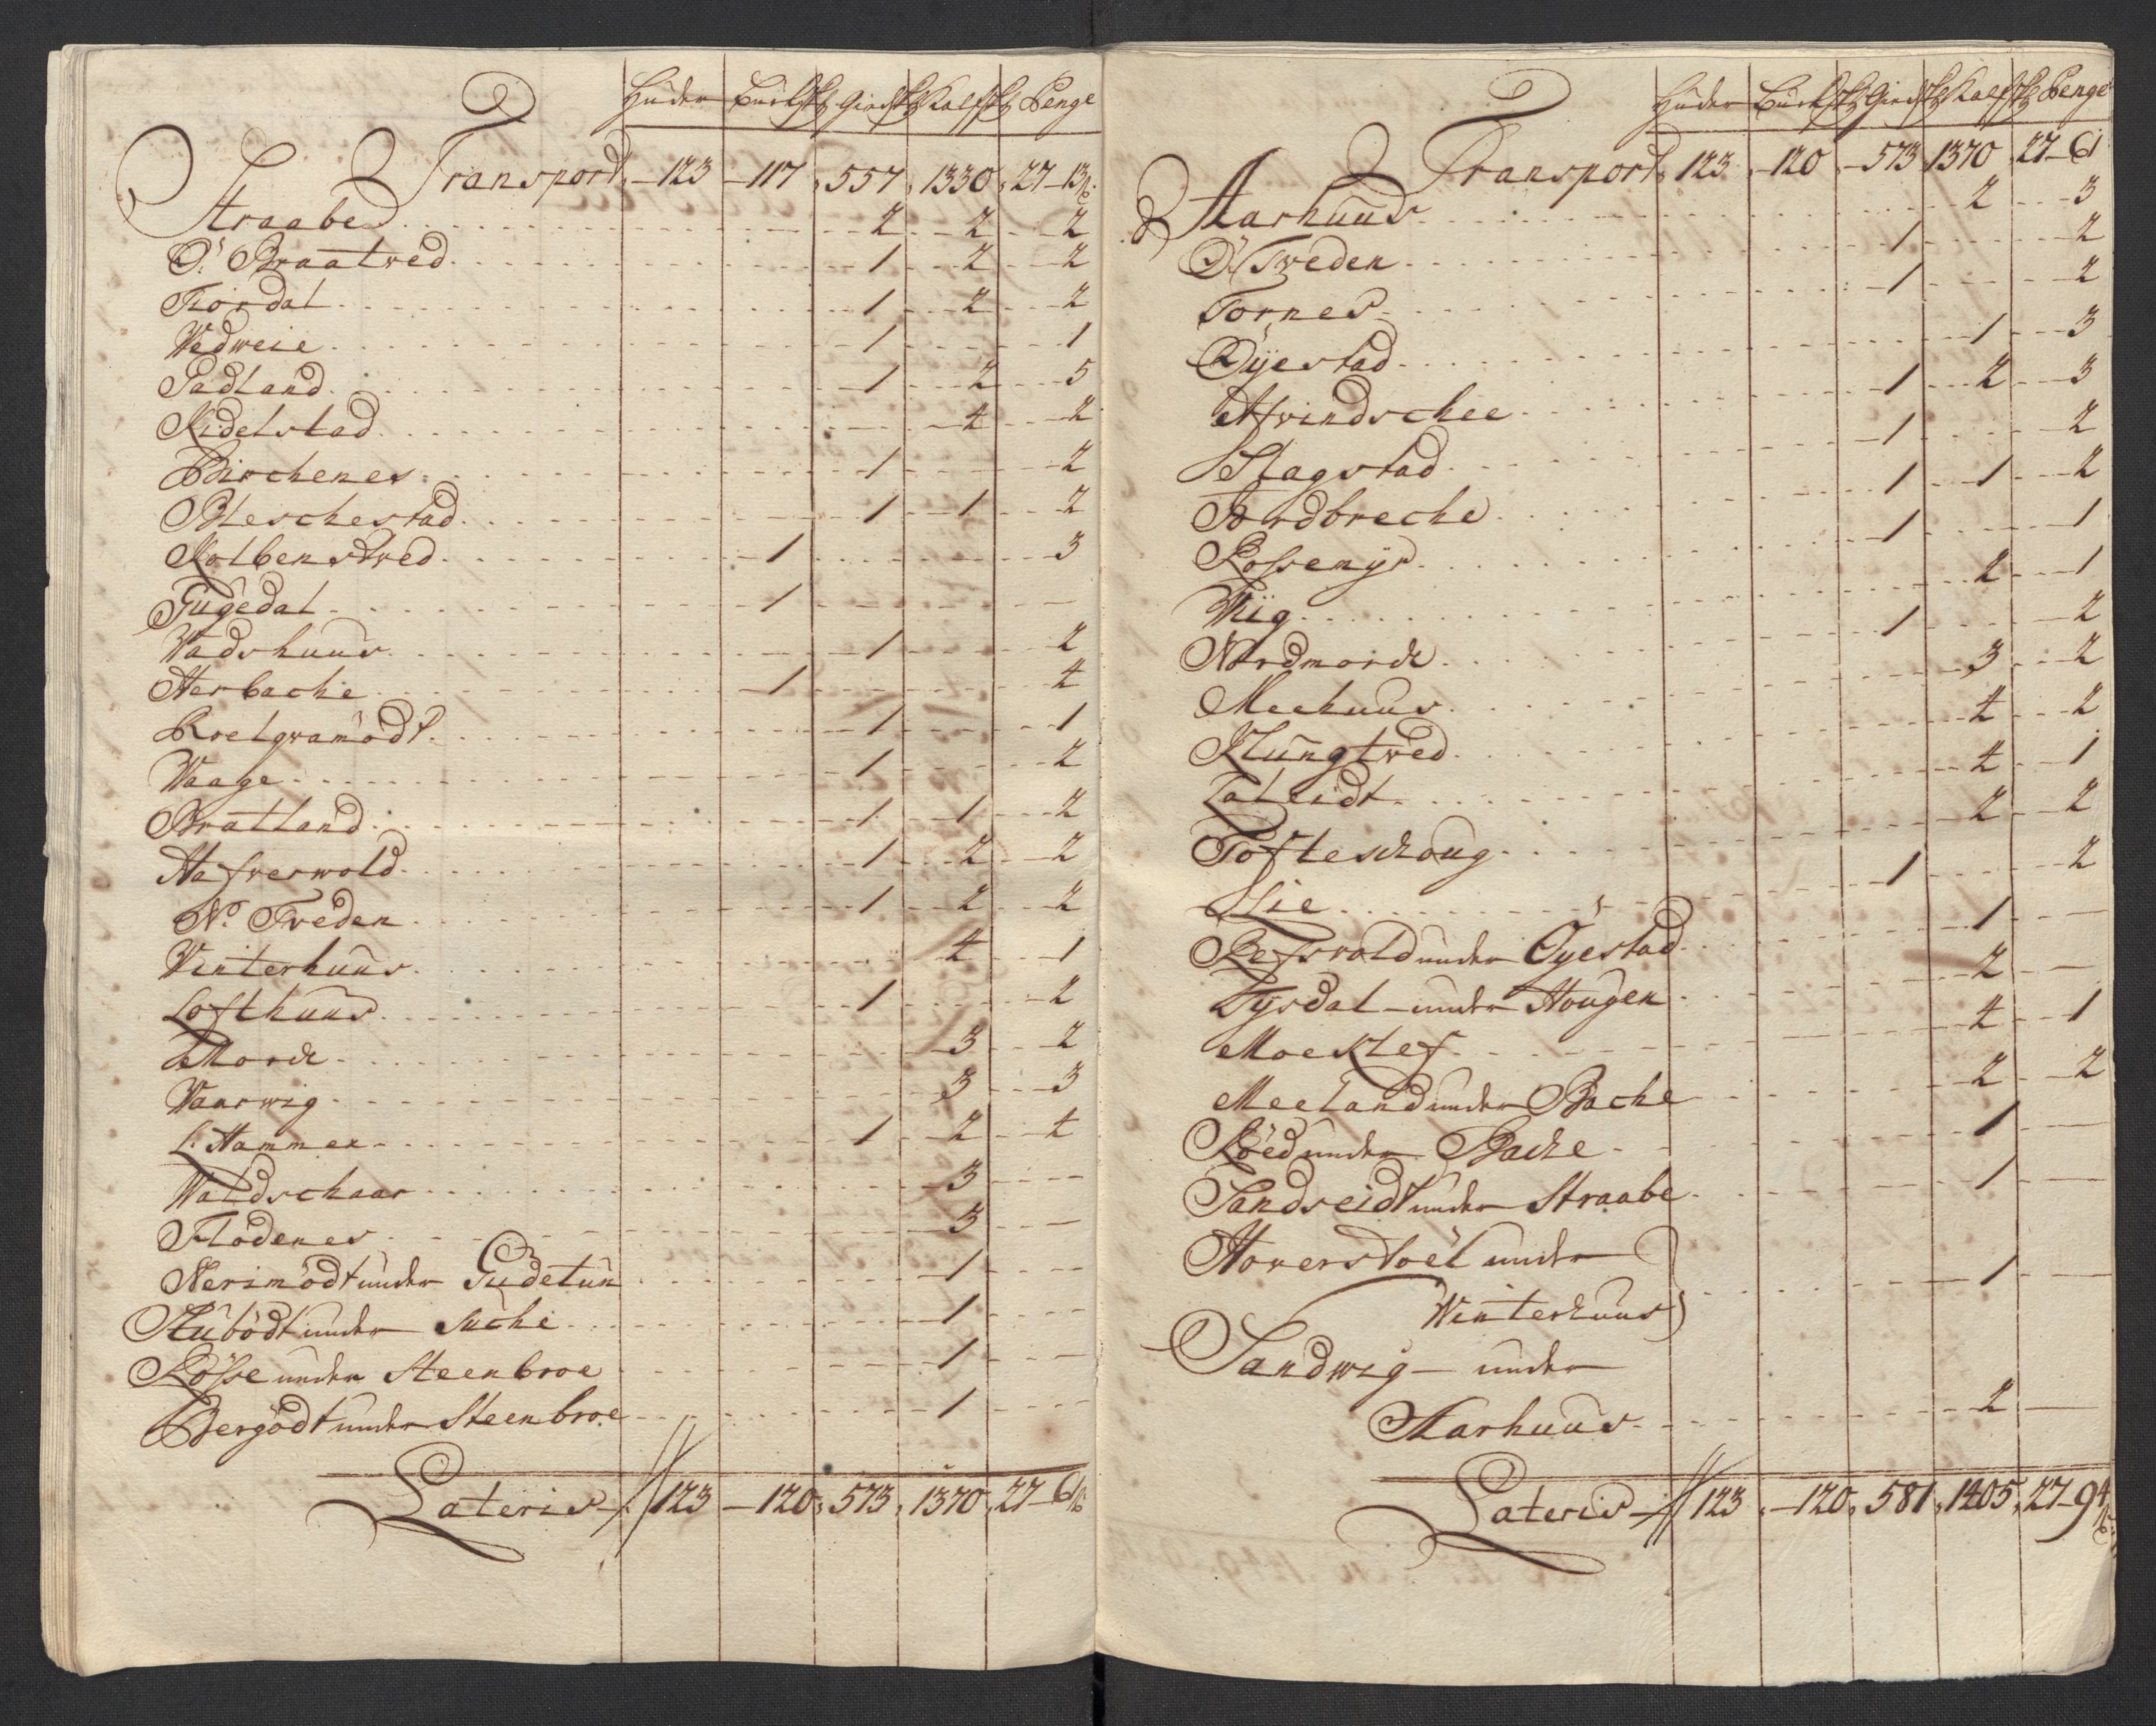 Huder Buckſk Giedſk Kalfſk Penge
Transport 123 117 557 1330 27 13
Straabe 2 2 2
Ö. Braatved 1 2 2
Fiördal 1 2 2
Vedweie 1 1
Sadland 1 2 5
Kidelstad 4 2
Birchenes 1 2
Bleschestad 1 1 2
Kolbenstved 1 3
Tugedal 1
Vadshuus 1 2
Herbache 1 4
Roelqvamödt 1 1
Waage 1 2
Bratland 1 1 2
Hafverwold 1 2 2
N. Tveden 1 2 2
Vinterhuus 4 1
Lofthuus 1 2
Morch 3 2
Vaarwig 3 3
L. Hammer 1 2 4
Waldschaar 3
Flödenes 3
Nerimödt under Gudetun 1
Stubödt under Suche 1
Röſse under Steenbroe 1
Bergödt under Steenbroe 1
Lateris 123 120 573 1370 27 6
Huder Buckſk Giedſk Kalfſk Penge
Transport 123 120 573 1370 27 6
Aarhuus 2 3
Ö. Tveden 1 2
Tornes 1 2
Öyestad 1 3
Afvindschee 1 2 3
Slagstad 1 2
Nordbreche 1 1 2
Roſsemyr 1 1
Wiig 2 1
Nordmorch 1 2
Meehuus 3 2
Klungtved 4 2
Laleidt 4 1
Tofteschoug 2 2
Lie 1 2
Refsvold under Öyestad 1
Tysdal under Hougen 2
Moeklef 4 1
Meeland under Bache 2 2
Röed under Bache 1
Sandseidt under Straabe 1
Hoverstoël under
Winterhuus 1
Sandwig under
Aarhuus 2
Lateris 123 120 581 1405 27 94